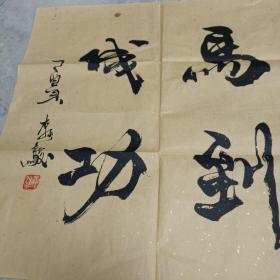 馬到
成功
丁酉年